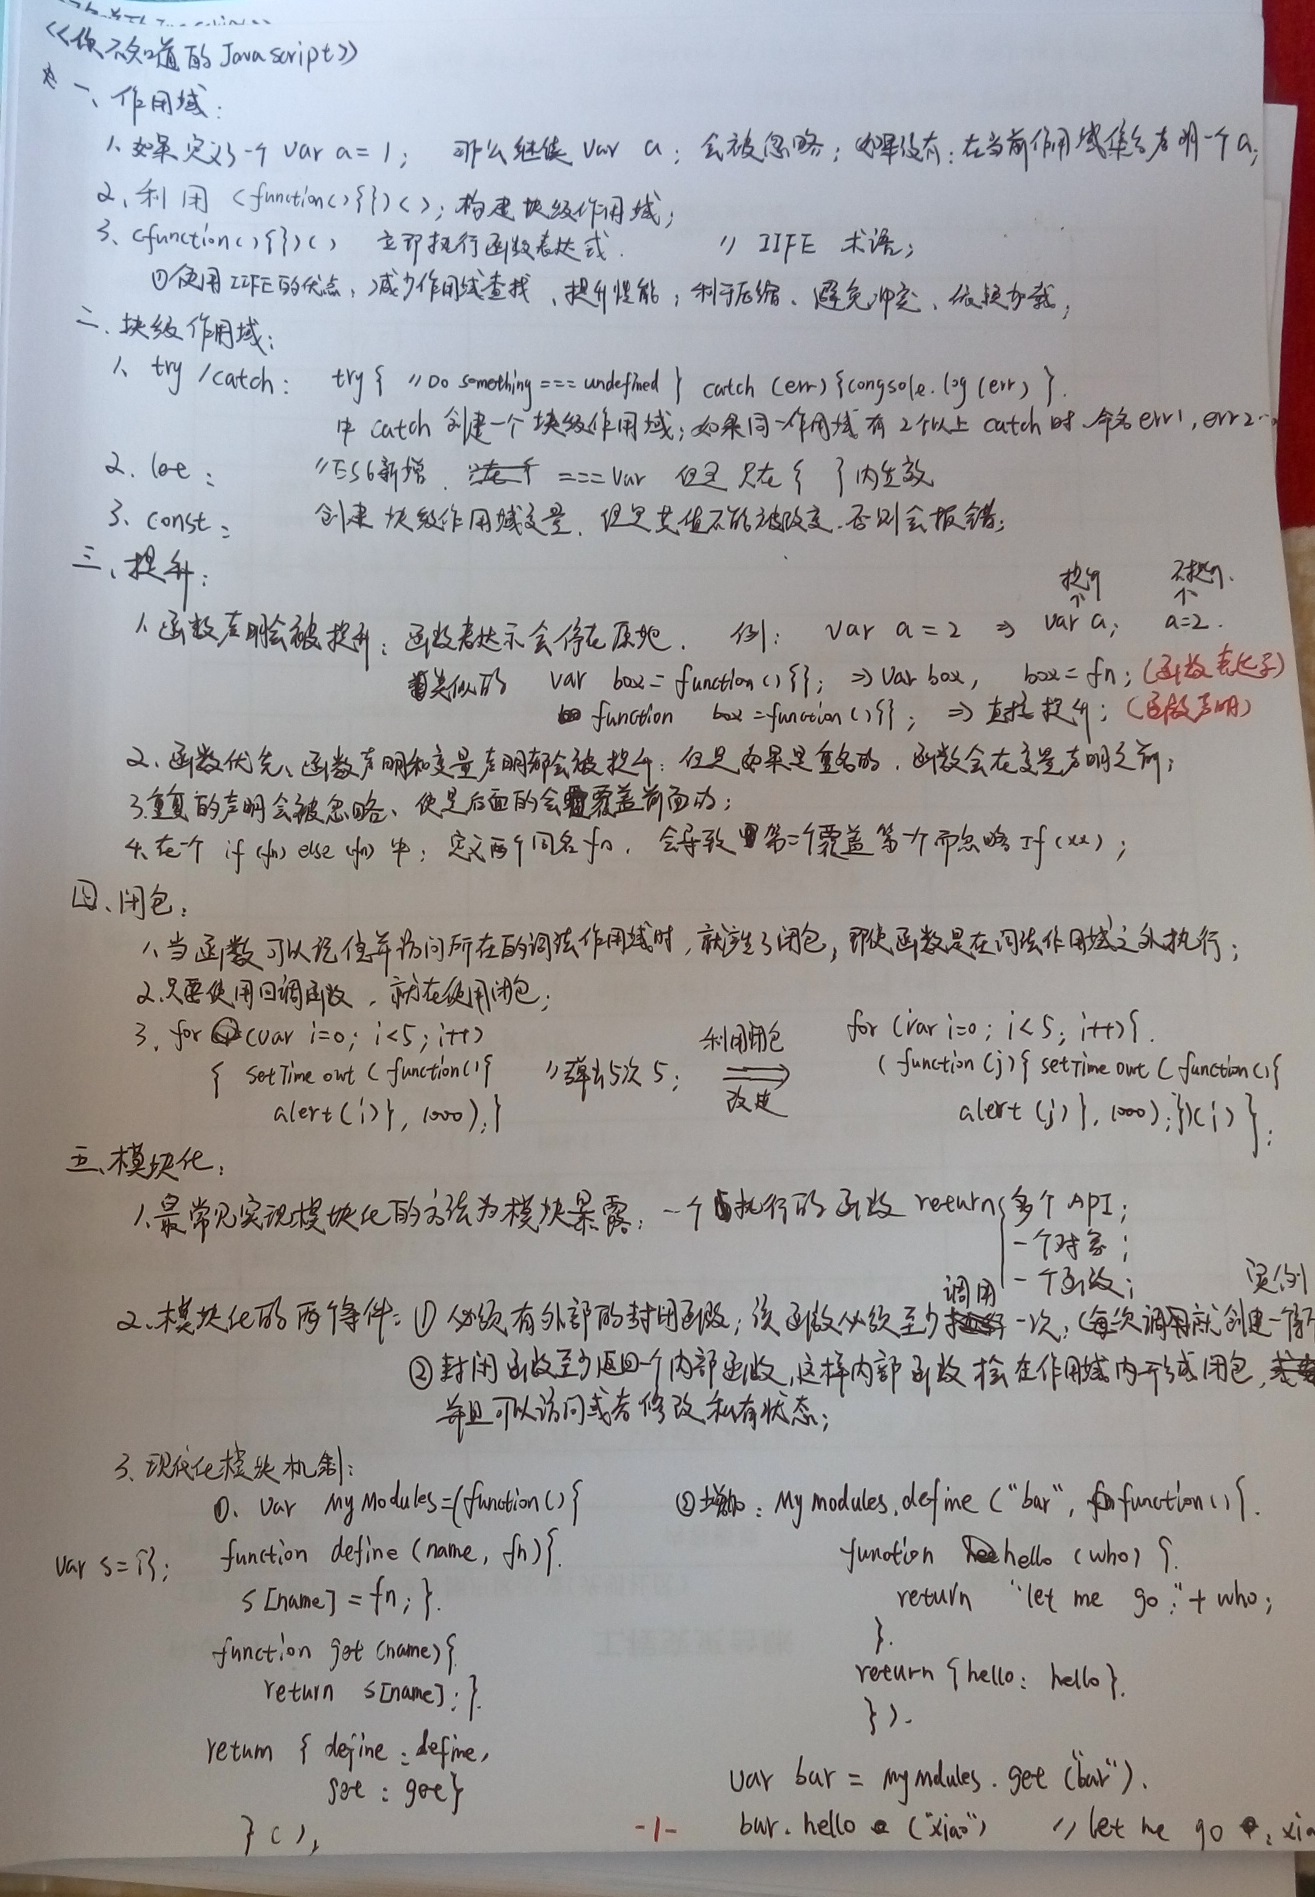 《你不知道的Javascript》
* 一、作用域：
1、如果定义了一个 var a = 1； 那么继续 var a；会被忽略；如果没有：在当前作用域集合声明一个a；
2、利用 (function(){})()；构建块级作用域；
3、(function(){})() 立即执行函数表达式. // IIFE 术语；
①使用IIFE的优点，减少作用域查找、提升性能；利于压缩、避免冲突、依赖加载；
二、块级作用域：
1、try/catch： try{ //Do something === undefined } catch (err){congsole.log(err) }.
中 catch 创建一个块级作用域；如果同一作用域有2个以上 catch 时.命名 err1, err2…
2、let： //ES6新增. === var 但是 只在{ }内生效
3、const： 创建 块级作用域变量. 但是其值不能被改变.否则会报错；
三、提升：
提升 不提升.
↑ ↑
1、函数声明会被提升；函数表达示会停在原地. 例： var a = 2 ⇒ var a； a=2.
类似的 var box = function(){}; ⇒ var box, box = fn; (函数表达式)
function box = function(){}; ⇒ 直接提升； (函数声明)
2、函数优先、函数声明和变量声明都会被提升；但是如果是重名的.函数会在变量声明之前；
3.重复的声明会被忽略、但是后面的会覆盖前面的；
4、在一个 if (fn) else (fn) 中；定义两个同名fn. 会导致第二个覆盖第一个而忽略 If (xx)；
四、闭包：
1、当函数可以记住并访问所在的词法作用域时，就产生了闭包，即使函数是在词法作用域之外执行；
2、只要使用回调函数，就在使用闭包；
3. for (var i=0; i<5; i++) 利用闭包 for (var i=0; i<5; i++){.
{ setTimeout ( function(){ //弹出5次5； ⇒ ( function (j){ setTimeout ( function(){
alert(i)}, 1000);} 改进 alert(j)}, 1000);})(i) };
五、模块化：
1、最常见实现模块化的方法为模块暴露；一个执行的函数 return{ 多个API；
一个对象；
一个函数；
调用 实例
2、模块化的两个条件：① 必须有外部的封闭函数；该函数必须至少 一次；(每次调用就创建一个新
② 封闭函数至少返回一个内部函数，这样内部函数 在作用域内形成闭包，
并且可以访问或者修改私有状态；
3、现代化模块机制：
①. var MyModules=(function(){
var s={};
function define (name, fn){.
s[name] = fn; }.
function get (name){.
return s[name]; }.
return { define : define,
get : get}
}();
②增加：Mymodules.define ("bar", function(){.
function hello (who) {.
return "let me go:" + who;
}.
return {hello: hello}.
}).
var bar = mymdules.get ("bar").
bar.hello ("xiao") // let me go : xia
-1-